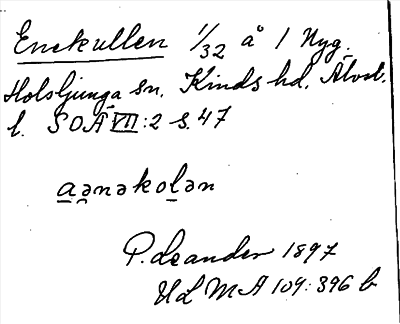 Enekullen 1/32 å 1 Nyg.
Holsljunga sn. Kinds hd, Älvsb.
l. SOÄ VII:2 s. 47
a̲ə̯nəkol̲ən
P. Leander 1897
ULMA 109:396 b